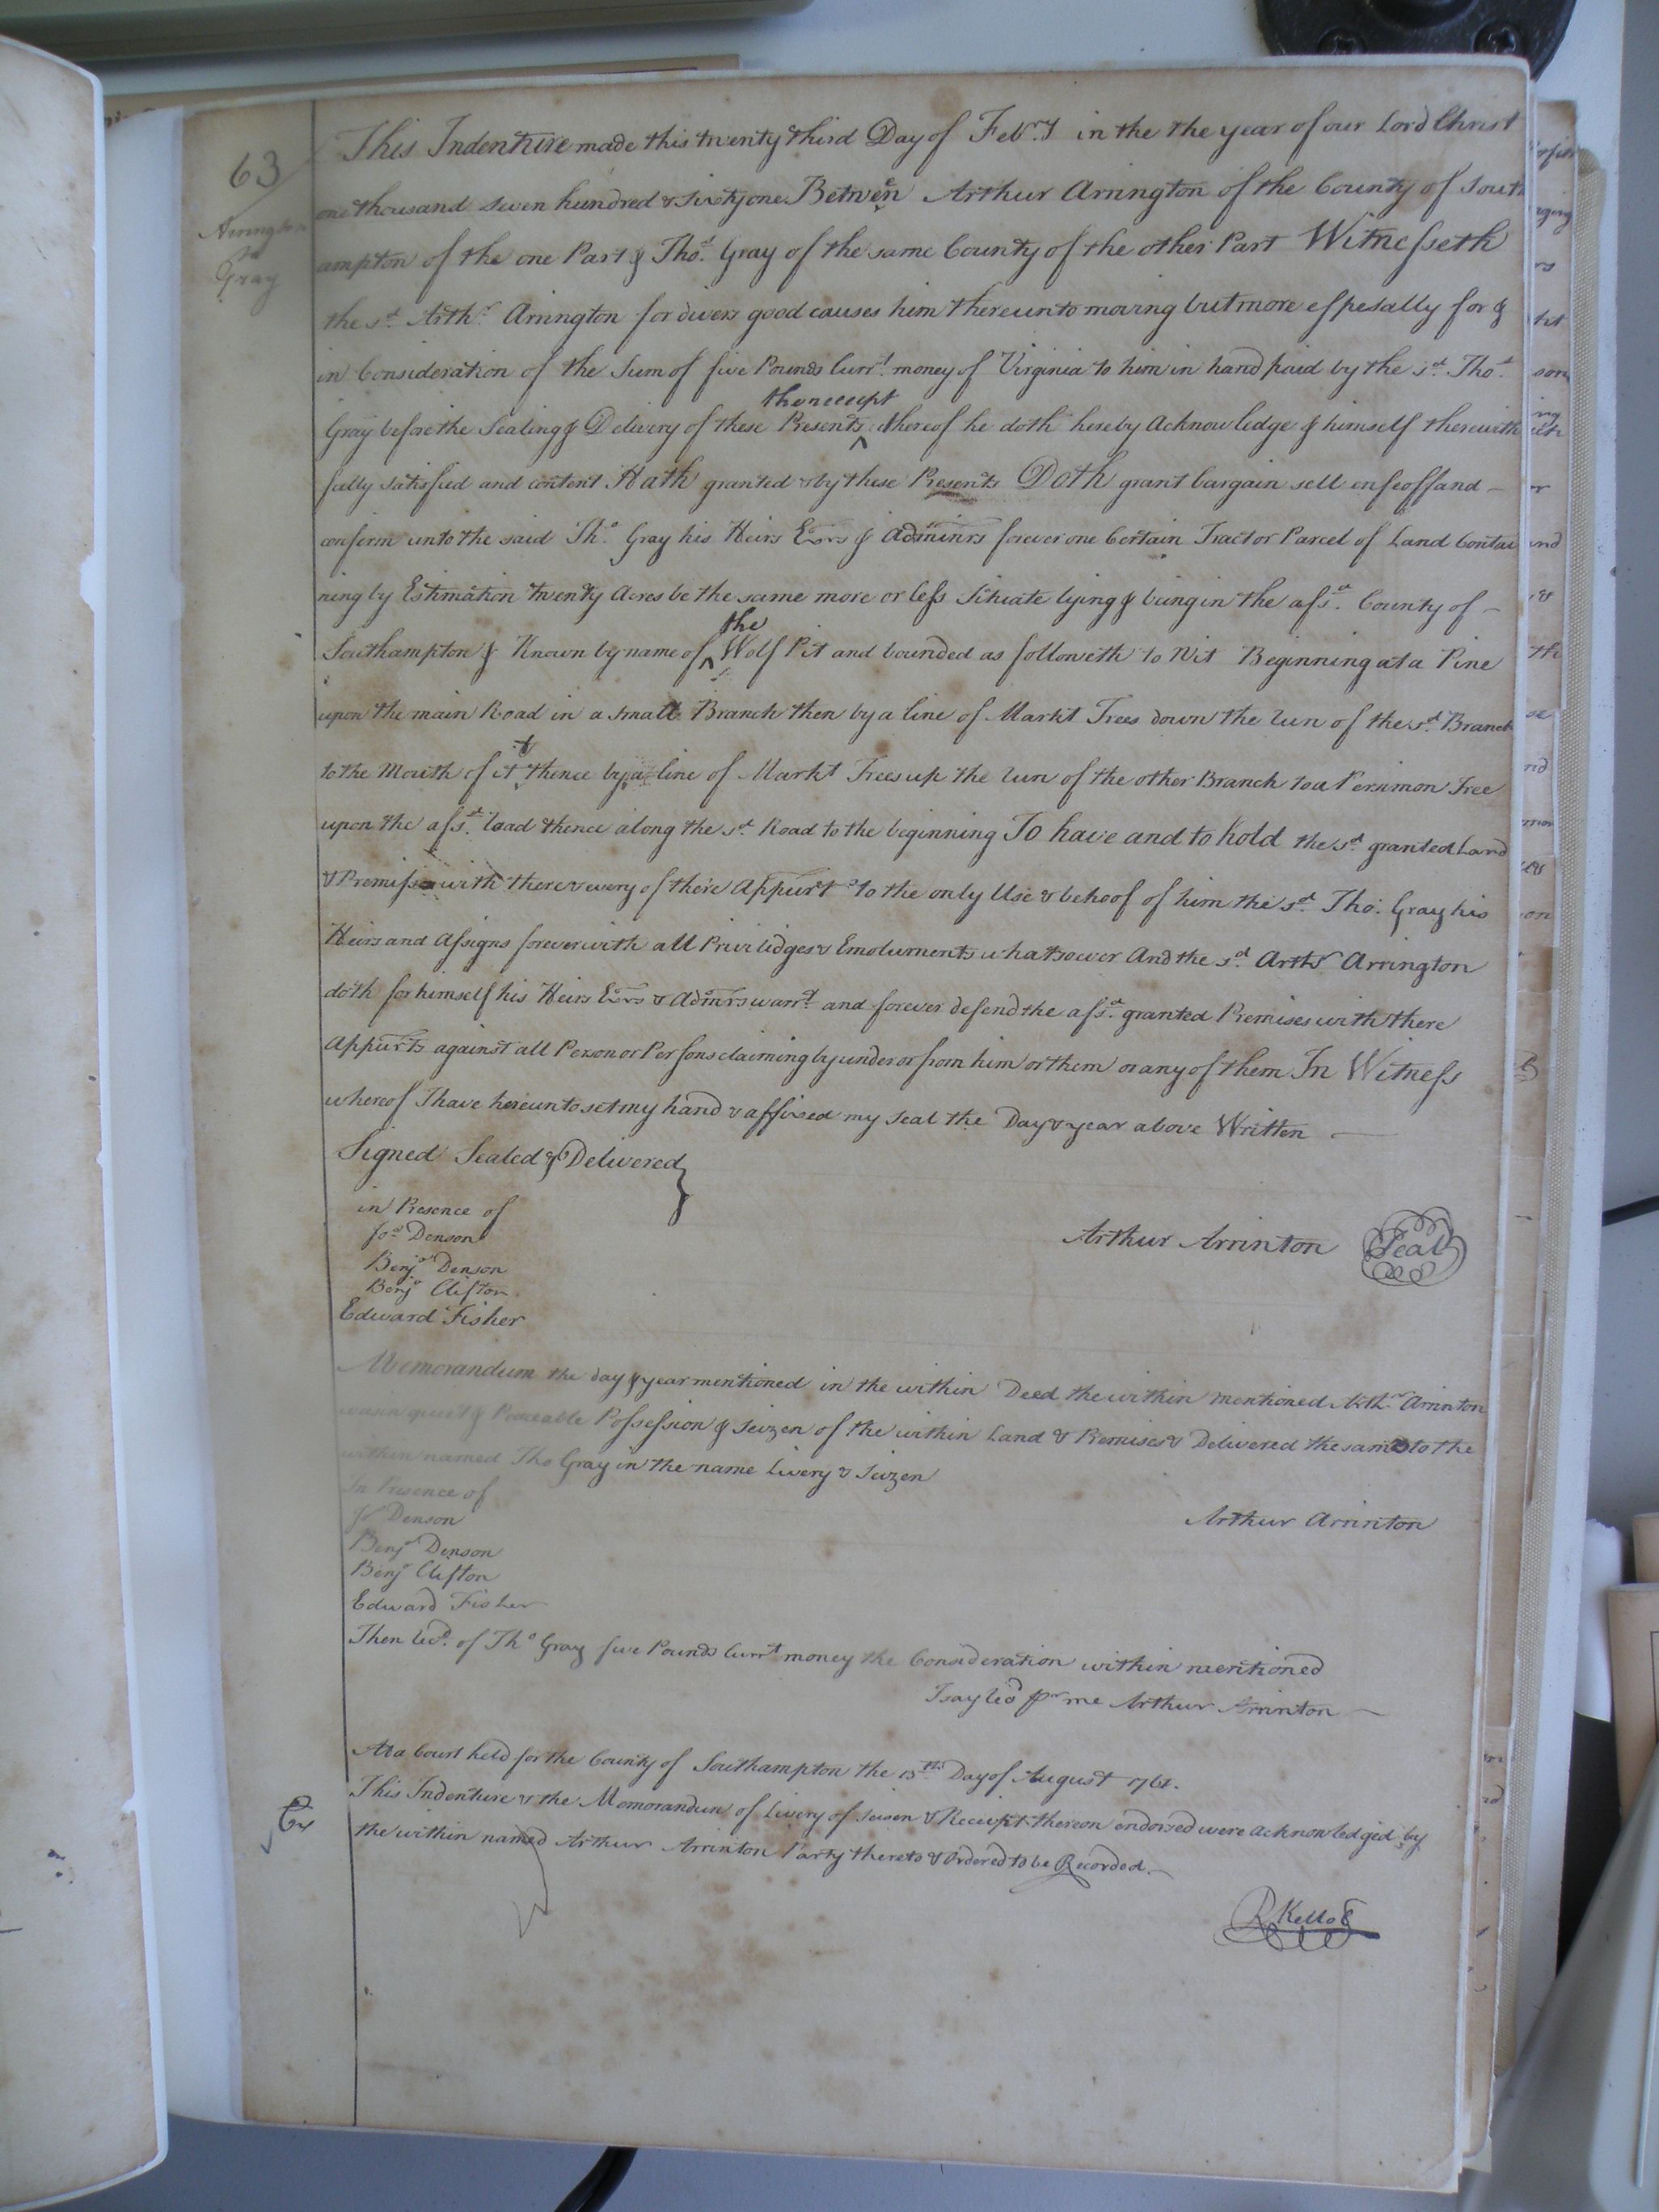 63
Arrington
to
Gray
This Indenture made this twenty third Day of Febry in the the year of our Lord Christ
one thousand seven hundred & sixty one Between Arthur Arrington of the County of South
ampton of the one Part & Thos. Gray of the same County of the other Part Witnesseth
the sd. Arthr. Arrington for divers good causes him thereunto moving but more espesally for &
in Consideration of the Sum of five Pounds Currt. money of Virginia to him in hand paid by the sd. Thos.
Gray before the Sealing & Delivery of these Presents the receipt thereof he doth hereby Acknowledge & himself therewith
fully satisfied and content Hath granted & by these Presents Doth grant bargain sell enfeoff and
conferm unto the said Tho. Gray his Heirs Exrs & Adminrs forever one Certain Tract or Parcel of Land Contai
ning by Estimation twenty Acres be the same more or less Situate lying & being in the afsd. County of
Southampton & Known by name of the Wolf Pit and bounded as followeth to Wit Beginning at a Pine
upon the main Road in a small Branch then by a line of Markt Trees down the run of the sd. Branch
to the Mouth of it thence by a line of Markt Trees up the run of the other Branch to a Persimon Tree
upon the afsd. Road thence along the sd. Road to the beginning To have and to hold the sd. granted Land
& Premises with there & every of there Appurts to the only Use & behoof of him the sd. Tho. Gray his
Heirs and Assigns forever with all Priviledges & Emoluments whatsoever And the sd. Arthr Arrington
doth for himself his Heirs Exrs & Admrs warrt. and forever defend the afsd. granted Premises with there
Appurts against all Person or Persons claiming by under or from him or them or any of them In Witness
whereof I have hereunto set my hand & affixed my seal the Day & year above Written
Signed Sealed & Delivered
in Presence of
Jos. Denson
Arthur Arrinton Seal
Benja Denson
Benja Clifton
Edward Fisher
Memorandum the day & year mentioned in the within Deed the within mentioned Arthr. Arrinton
was in quiet & Peaceable Possession & Seizen of the within Land & Premises & Delivered the same to the
within named Tho Gray in the name Livery & Seizen
In Presence of
Jos Denson
Arthur Arrinton
Benja Denson
Benja Clifton
Edward Fisher
Then Recd. of Tho Gray five Pounds Currt money the Consideration within mentioned
I say Recd pr me Arthur Arrinton
At a Court held for the County of Southampton the 13th. Day of August 1761.
This Indenture & the Memorandum of Livery of Seisen & Receipt thereon endorsed were acknowledged by
the within named Arthur Arrinton Party thereto & Ordered to be Recorded.
R Kello C